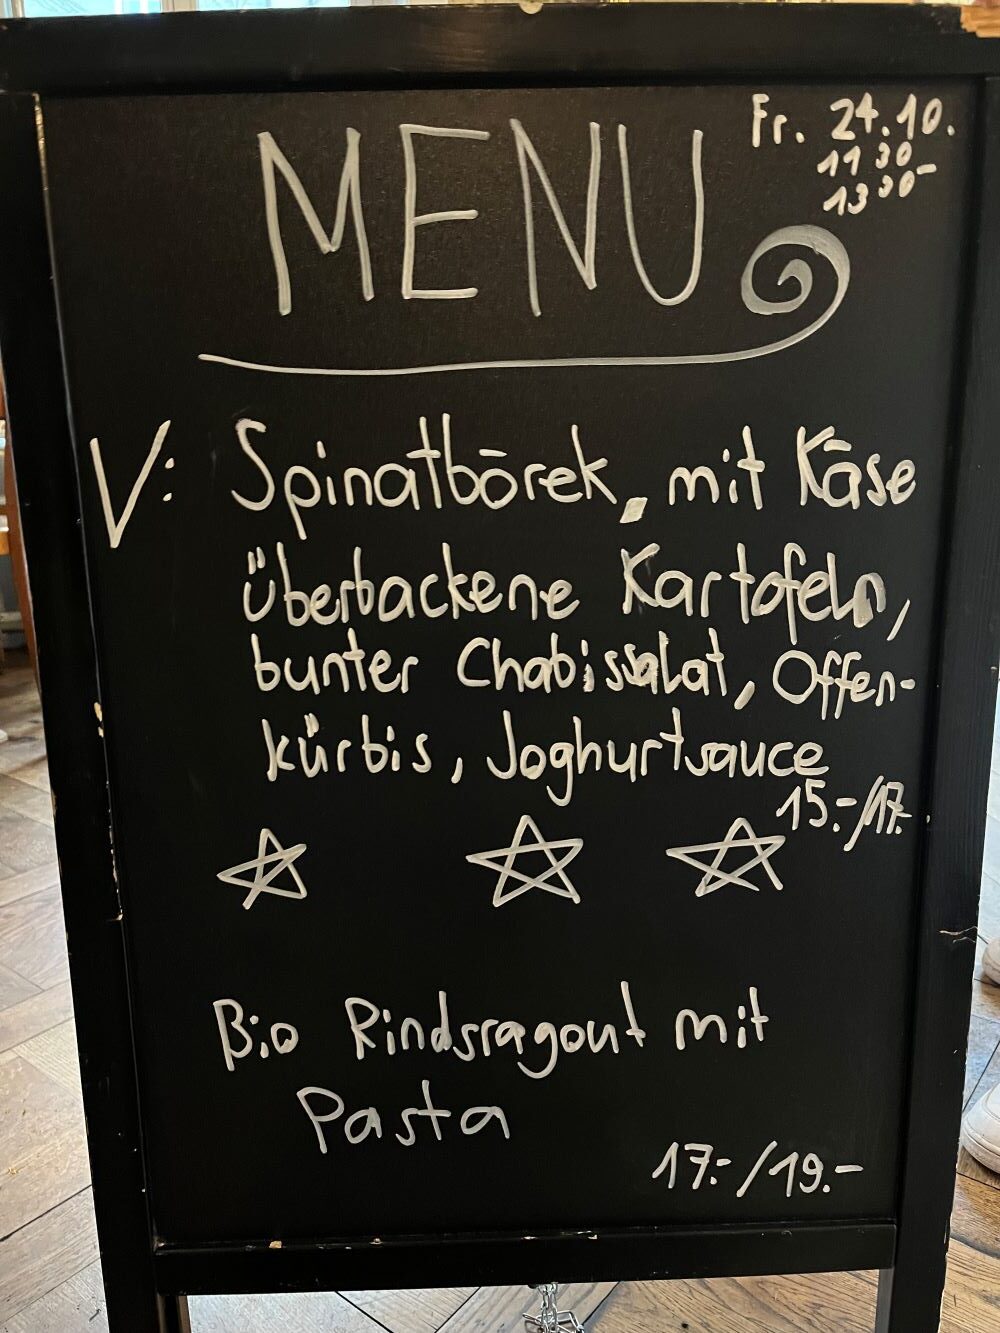 MENU
Fr. 24.10.
11 30 -
13 30
V: Spinatbörek, mit Käse
überbackene Kartofeln,
bunter Chabissalat, Offen-
kürbis, Joghurtsauce
15.-/17.-
Bio Rindsragout mit
Pasta
17.-/19.-